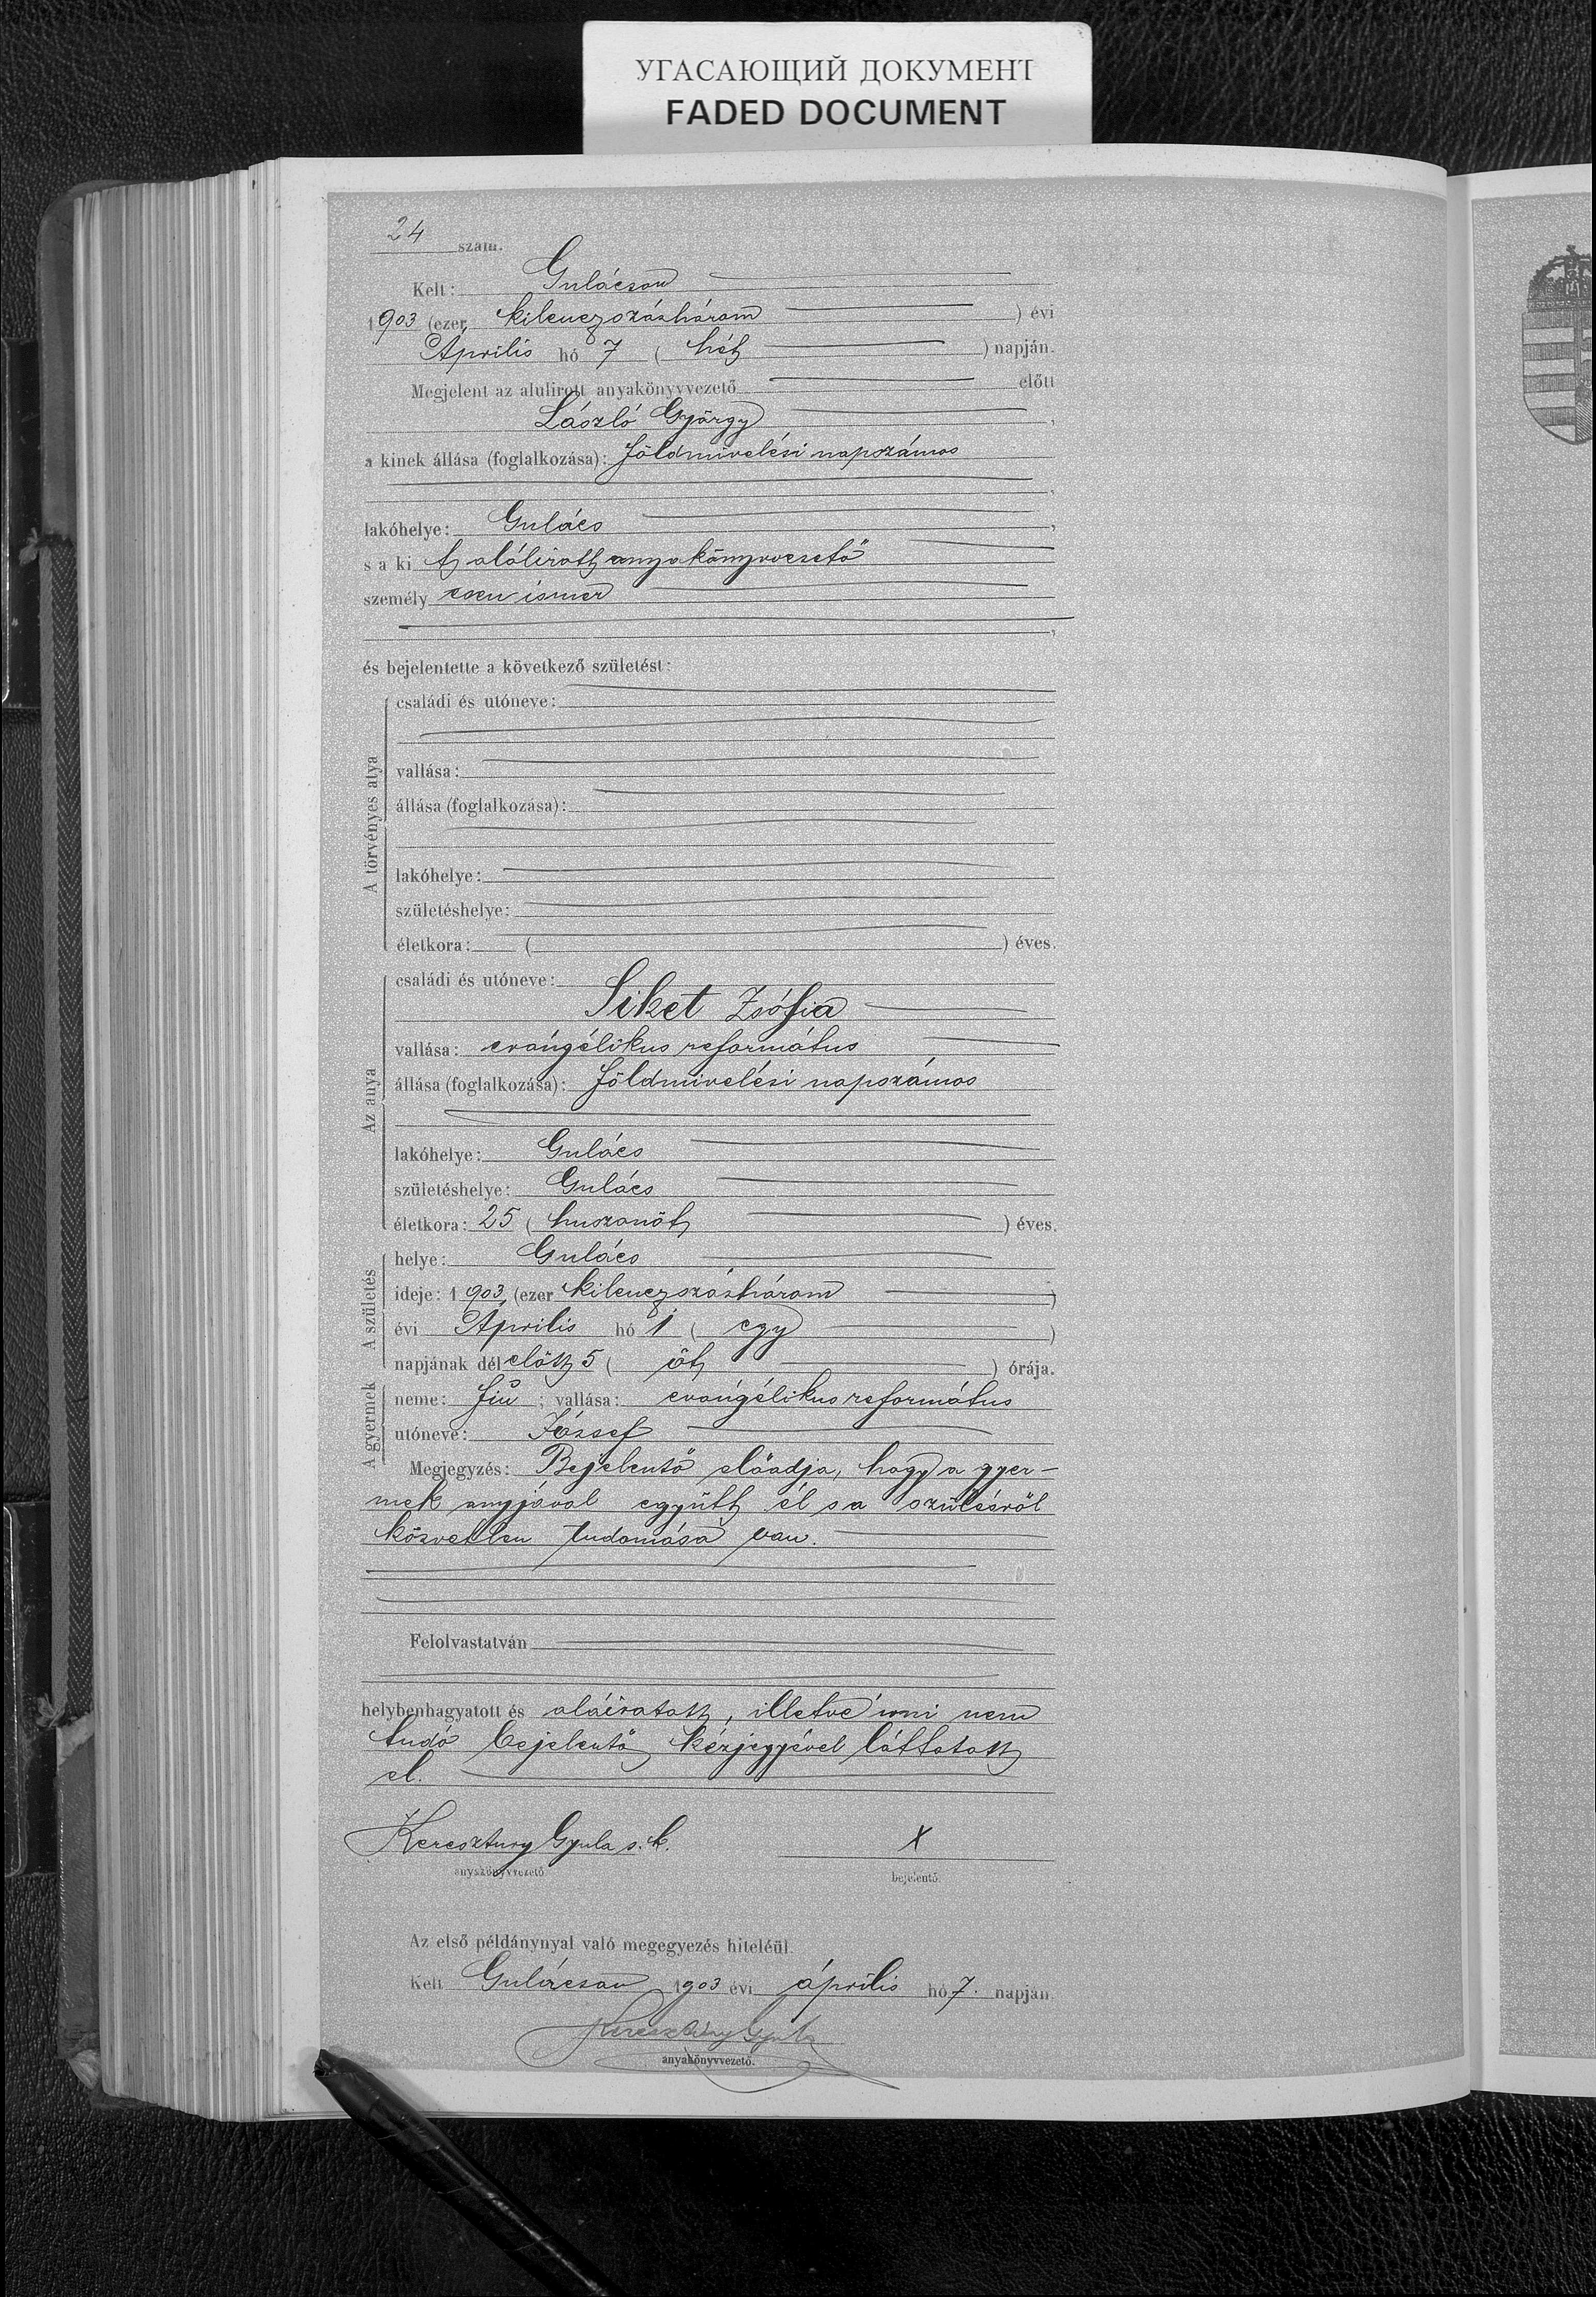 УГАСАЮЩИЙ ДОКУМЕНТ
FADED DOCUMENT
24 szám.
Kelt: Gulácson
1903 (ezer kilenczszázhárom ) évi
Április hó 7 ( hét ) napján.
Megjelent az alulirott anyakönyvvezető előtt
László György ,
a kinek állása (foglalkozása): földmivelési napszámos
,
lakóhelye: Gulács ,
s a ki t alólirott anyakönyvvezető
személy esen ismer
,
és bejelentette a következő születést:
A törvényes atya
családi és utóneve:
vallása:
állása (foglalkozása):
lakóhelye:
születéshelye:
életkora: ( ) éves.
Az anya
családi és utóneve:
Siket Zsófia
vallása: evángélikus református
állása (foglalkozása): földmivelési napszámos
lakóhelye: Gulács
születéshelye: Gulács
életkora: 25 ( huszonöt ) éves.
A születés
helye: Gulács
ideje: 1903 (ezer kilenczszázhárom )
évi Április hó 1 ( egy )
napjának dél előtt 5 ( öt ) órája.
A gyermek
neme: fiú ; vallása: evángélikus református
utóneve: József
Megjegyzés: Bejelentő előadja, hogy a gyer-
mek anyjával együtt él s a szülésről
közvetlen tudomása van.
Felolvastatván
helybenhagyatott és aláiratott, illetve irni nem
tudó bejelentő kézjegyével láttatott
el.
Keresztury Gyula s. k. X
anyakönyvvezető bejelentő.
Az első példánynyal való megegyezés hiteléül.
Kelt Gulácson 1903 évi április hó 7. napján.
Keresztury Gyula
anyakönyvvezető.